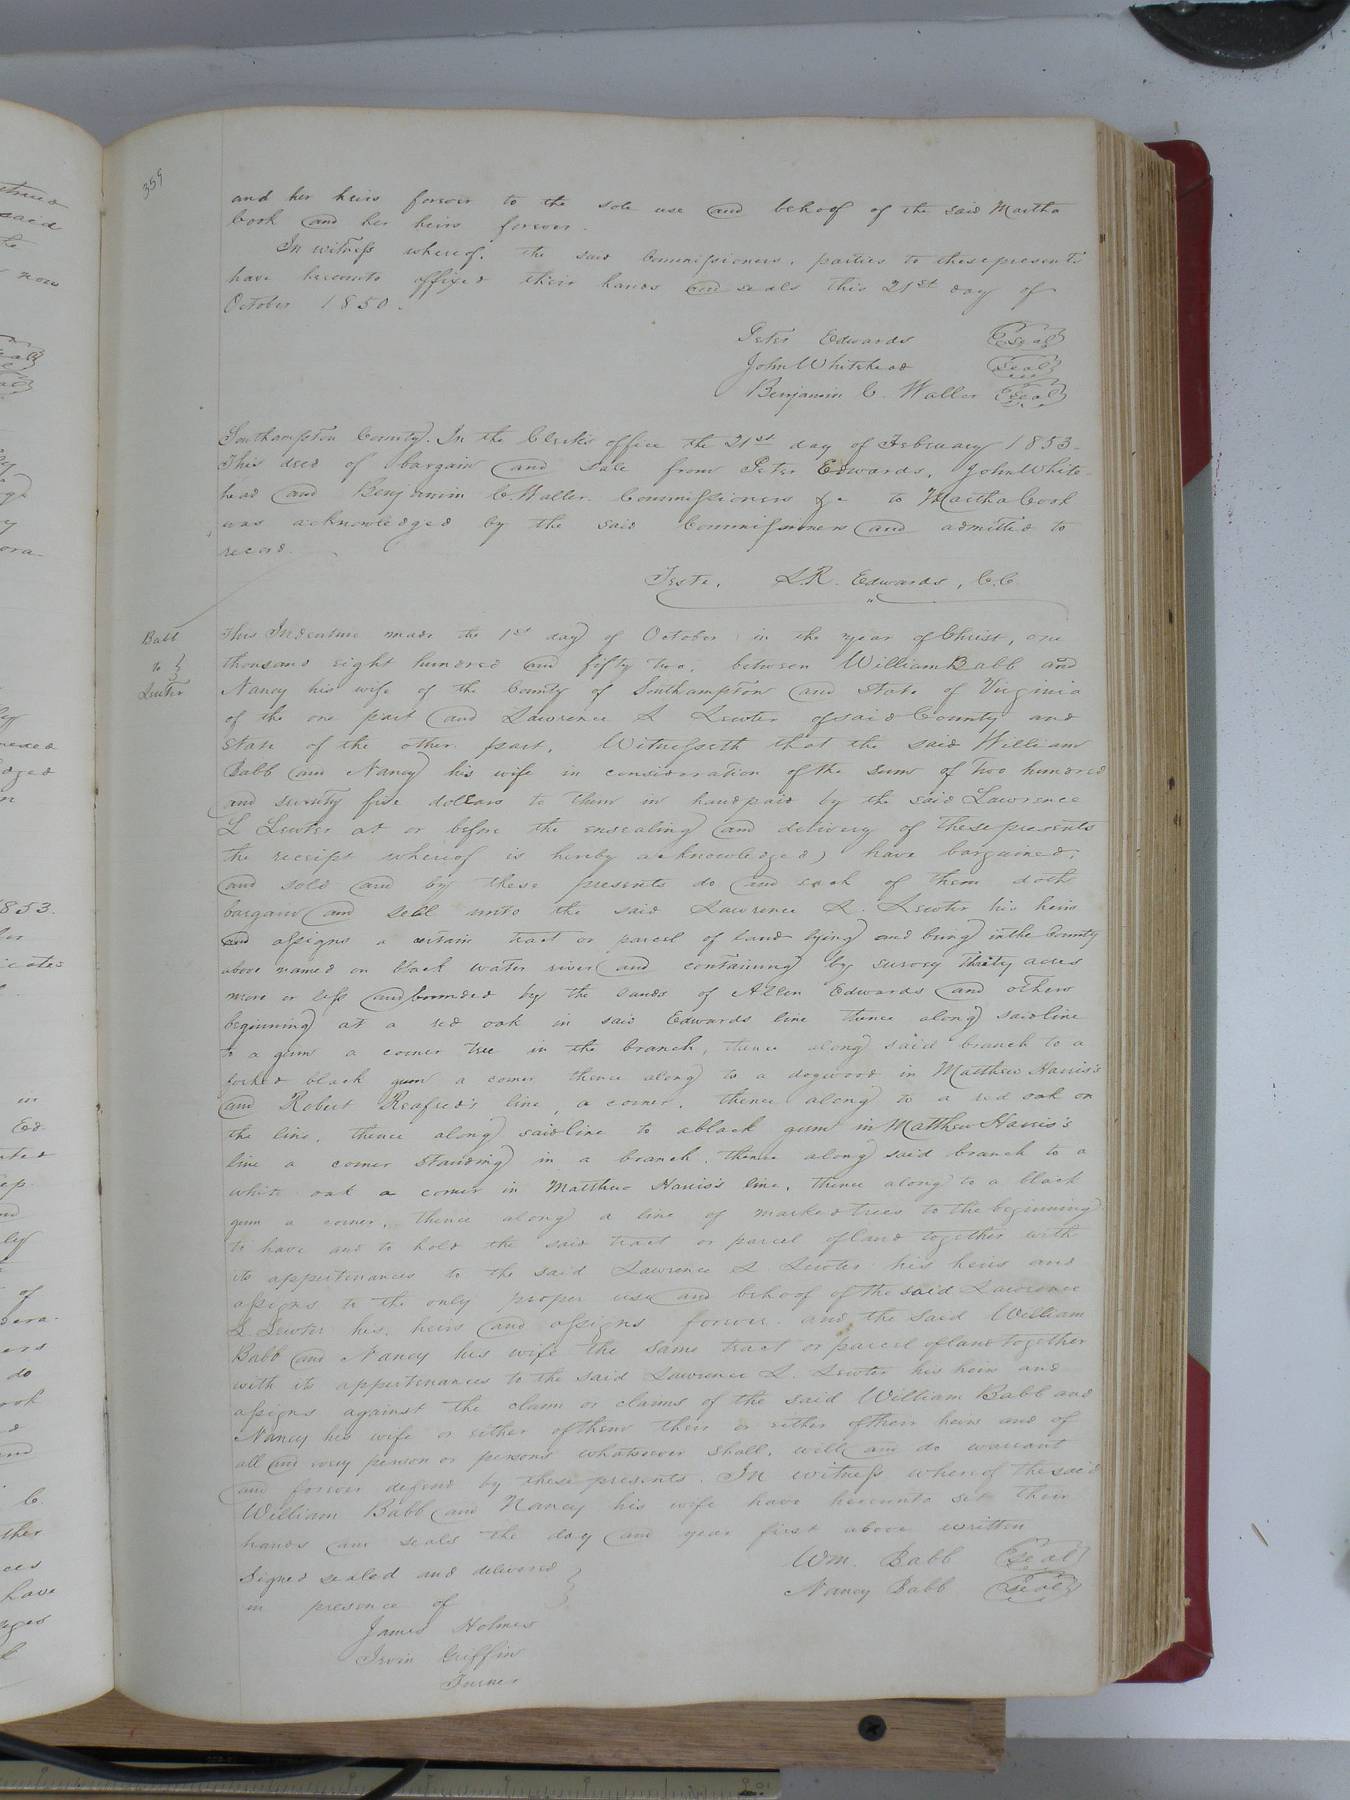 359
and her heirs forever to the sole use and behoof of the said Martha
Cook and her heirs forever.
In witness whereof, the said Commissioners, parties to these presents
have hereunto affixed their hands and seals this 21st day of
October 1850.
Peter Edwards Seal
John Whitehead Seal
Benjamin C. Waller Seal
Southampton County. In the Clerk's office the 21st day of February 1853.
This deed of bargain and sale from Peter Edwards, John White-
head and Benjamin C. Waller Commissioners &c to Martha Cook
was acknowledged by the said Commissioners and admitted to
record.
Teste, L.R. Edwards, C.C.
Babb
to
Lewter
This Indenture made the 1st day of October in the year of Christ, one
thousand eight hundred and fifty two, between William Babb and
Nancy his wife of the County of Southampton and State of Virginia
of the one part and Lawrence L Lewter of said County and
State of the other part, Witnesseth that the said William
Babb and Nancy his wife in consideration of the sum of two hundred
and seventy five dollars to them in hand paid by the said Lawrence
L Lewter at or before the ensealing and delivery of these presents
the receipt whereof is hereby acknowledged, have bargained,
and sold and by these presents do and each of them doth
bargain and sell unto the said Lawrence L. Lewter his heirs
and assigns a certain tract or parcel of land lying and being in the County
above named on black water river and containing by survey thirty acres
more or less and bounded by the lands of Allen Edwards and others
beginning at a red oak in said Edwards line thence along said line
to a gum a corner tree in the branch, thence along said branch to a
forked black gum a corner thence along to a dogwood in Matthew Harris's
and Robert Renfred's line, a corner, thence along to a red oak on
the line, thence along said line to a black gum in Matthew Harris's
line a corner standing in a branch, thence along said branch to a
white oak a corner in Matthew Harris's line, thence along to a black
gum a corner, thence along a line of marked trees to the beginning
to have and to hold the said tract or parcel of land together with
its appertenances to the said Lawrence L Lewter his heirs and
assigns to the only proper use and behoof of the said Lawrence
L Lewter his heirs and assigns forever. and the said William
Babb and Nancy his wife the same tract or parcel of land together
with its appertenances to the said Lawrence L. Lewter his heirs and
assigns against the claim or claims of the said William Babb and
Nancy his wife or either of them their or either of their heirs and of
all and every person or persons whatsoever shall, will and do warrant
and forever defend by these presents. In witness whereof the said
William Babb and Nancy his wife have hereunto set their
hands and seals the day and year first above written
Signed sealed and delivered
in presence of
Wm. Babb Seal
Nancy Babb Seal
James Holmes
Irvin Griffin
Turner